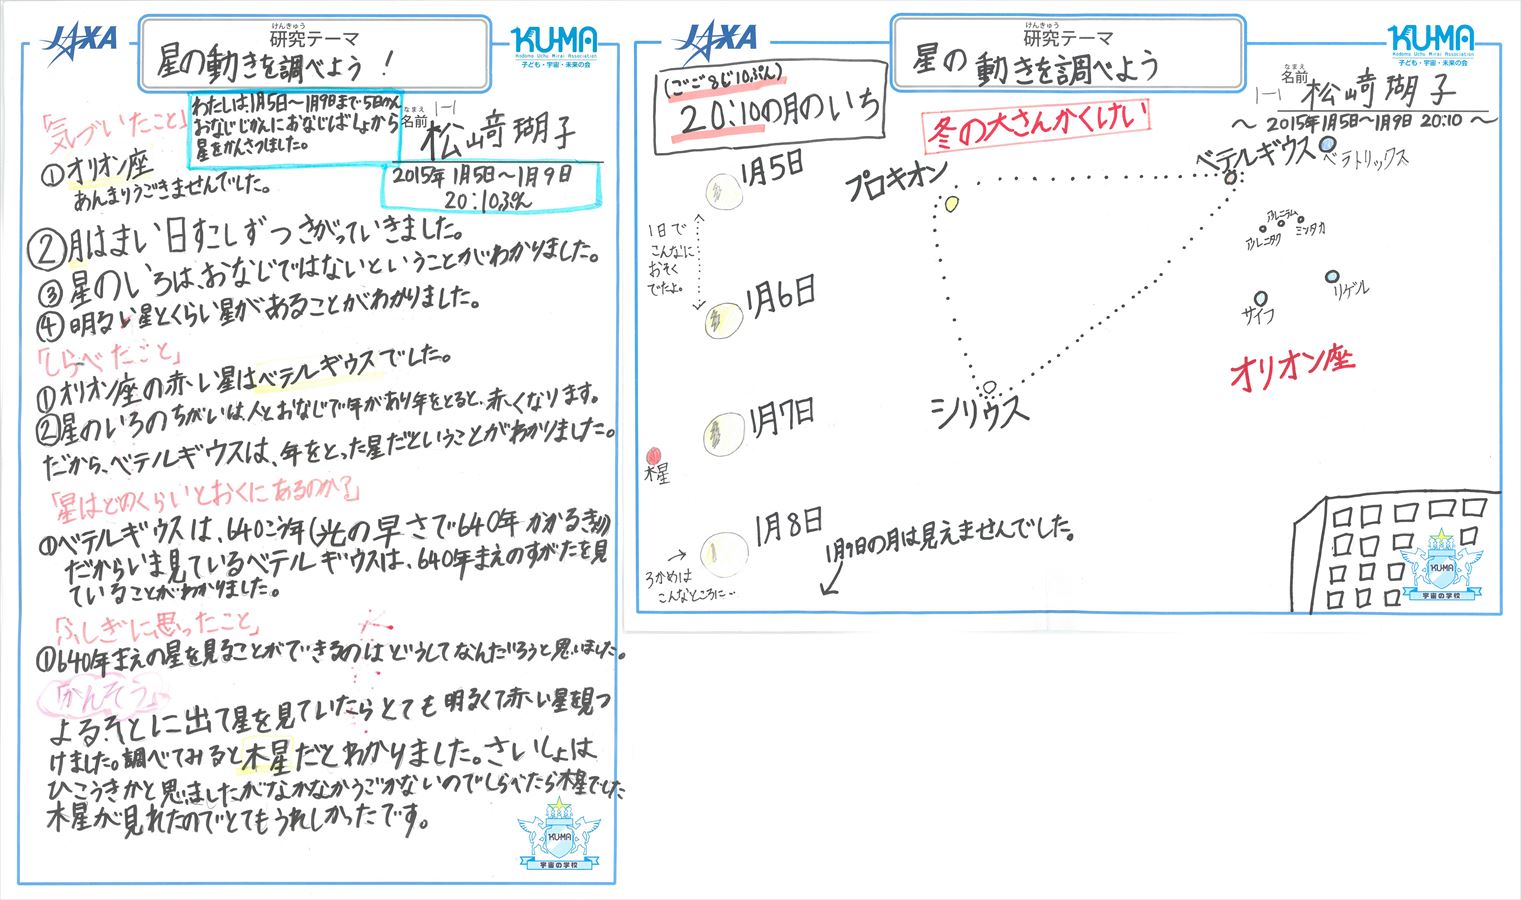 JAXA
けんきゅう
研究テーマ
星の動きを調べよう!
KU-MA
Kodomo Uchu Mirai Association
子ども・宇宙・未来の会
わたしは1月5日～1月9日まで5日かん
おなじじかんにおなじばしょから
星をかんさつしました。
なまえ
名前
1-1
松﨑瑚子
2015年1月5日～1月9日
20:10ぷん
「気づいたこと」
①オリオン座
あんまりうごきませんでした。
②月はまい日すこしずつさがっていきました。
③星のいろは、おなじではないということがわかりました。
④明るい星とくらい星があることがわかりました。
「しらべたこと」
①オリオン座の赤い星はベテルギウスでした。
②星のいろのちがいは、人とおなじで年があり年をとると、赤くなります。
だから、ベテルギウスは、年をとった星だということがわかりました。
「星はどのくらいとおくにあるのか?」
①ベテルギウスは、640こう年(光の早さで640年かかるきょり)
だからいま見ているベテルギウスは、640年まえのすがたを見
ていることがわかりました。
「ふしぎに思ったこと」
①640年まえの星を見ることができるのはどうしてなんだろうと思いました。
「かんそう」
よる、そとに出て星を見ていたらとても明るくて赤い星を見つ
けました。調べてみると木星だとわかりました。さいしょは
ひこうきかと思いましたがなかなかうごかないのでしらべたら木星でした
木星が見れたのでとてもうれしかったです。
KU-MA
宇宙の学校
JAXA
けんきゅう
研究テーマ
星の動きを調べよう
KU-MA
Kodomo Uchu Mirai Association
子ども・宇宙・未来の会
なまえ
名前
1-1
松﨑瑚子
～2015年1月5日～1月9日 20:10～
(ごご8じ10ぷん)
20:10の月のいち
冬の大さんかくけい
1月5日
1日で
こんなに
おそく
でたよ。
1月6日
1月7日
木星
1月8日
3かめは
こんなところに…
1月9日の月は見えませんでした。
プロキオン
ベテルギウス
ベラトリックス
アルニラム
アルニタク
ミンタカ
リゲル
サイフ
シリウス
オリオン座
KU-MA
宇宙の学校